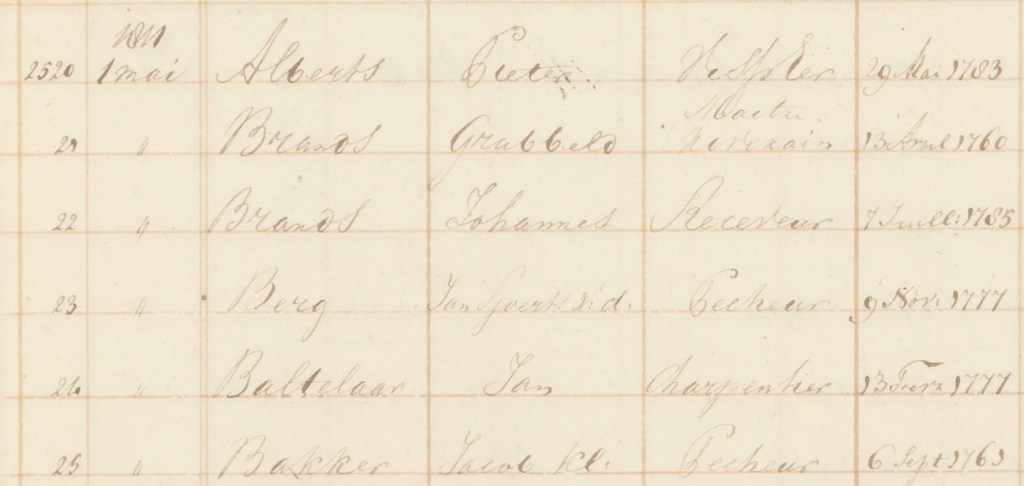 1811
2520 1 mai Alberts Pieter 29 Mai 1783
Maitre
21 " Brands Grabbeld 13 Avril 1760
22 " Brands Johannes Receveur 7 Juill: 1785
23 " Berg Jan Pecheur 9 Nov: 1777
24 " Baltelaar Jan Charpentier 13 1777
25 " Bakker Jacob Kl: Pecheur 6 Sept 1761